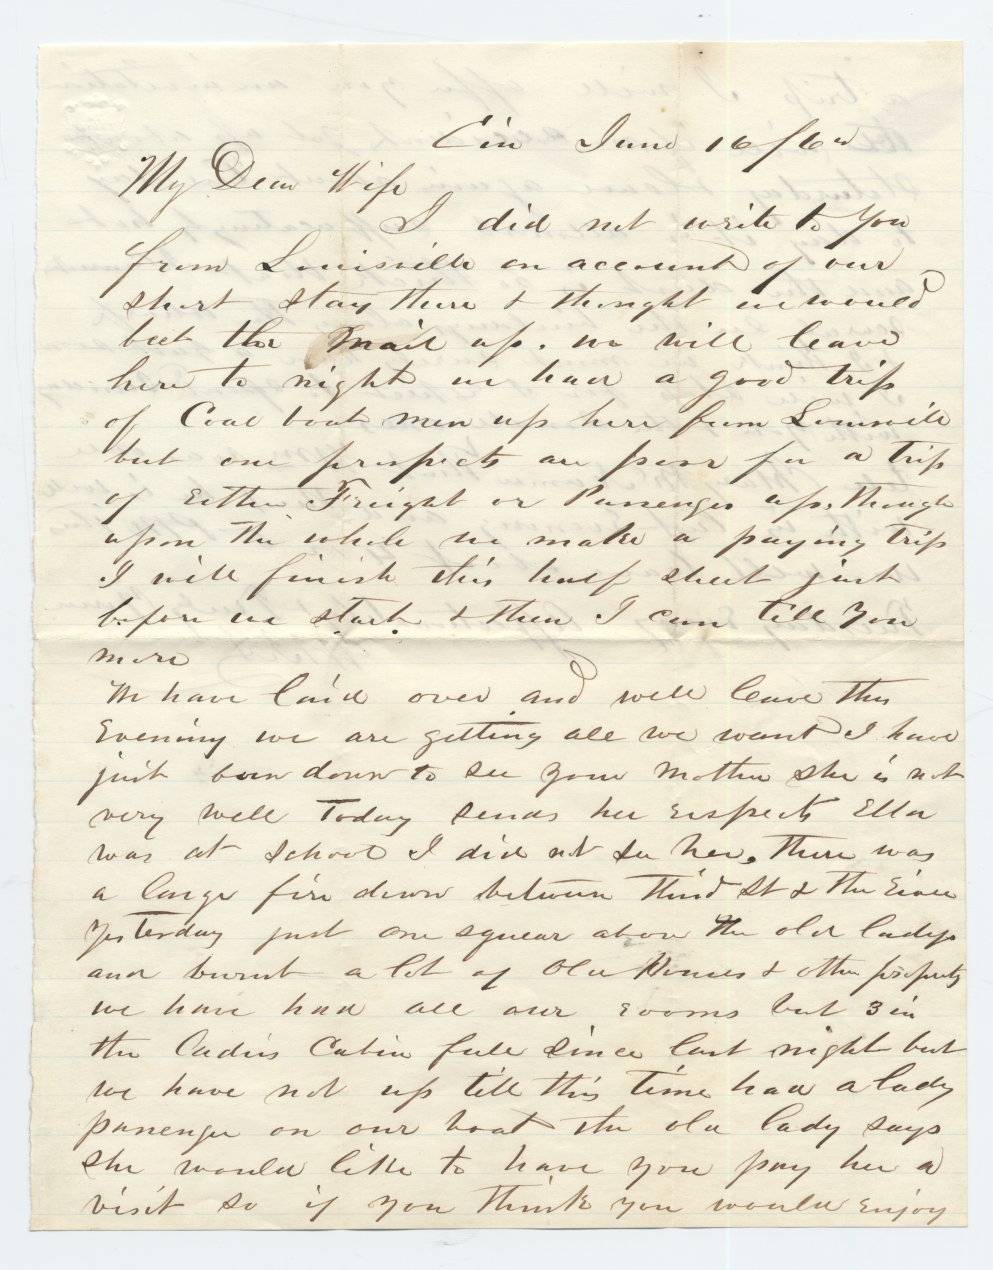 Cin June 16/6
My Dear Wife
I did not write to you
from Louisville on account of our
short stay there & thought we would
beet the Mail up. we will leave
here to night we had a good trip
of Coal boat men up here from Louisville
but our prospects are poor for a trip
of Either Freight or Passenger up. though
upon the whole we make a paying trip
I will finish this half sheet just
before we start & then I can till you
more
We have laid over and will leave this
Evening we are getting all we want I have
just been down to see your Mother she is not
very well Today sends her Respects Ella
was at School I did not see her. There was
a large fire down between Third St & the River
yesterday just one squear above the old ladys
and burnt a lot of Old Houses & other property
we have had all our Rooms but 3 in
the Ladies Cabin full since last night but
we have not up till this time had a lady
passenger on our boat the old lady says
she would like to have you pay her a
visit so if you think you would Enjoy